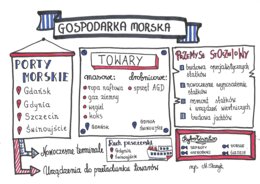 GOSPODARKA MORSKA
PORTY
MORSKIE
Gdańsk
Gdynia
Szczecin
Świnoujście
TOWARY
masowe:
drobnicowe:
ropa naftowa
sprzęt AGD
gaz ziemny
węgiel
koks
GDAŃSK
GDYNIA
Ruch pasażerski
Gdynia
Świnoujście
PRZEMYSŁ STOCZNIOWY
budowa specjalistycznych
statków
nowoczesne wyposażenie
statków
remont statków
i urządzeń wiertniczych
budowa jachtów
Rybołówstwo
Nowoczesne terminale
Urządzenia do przeładunku towarów